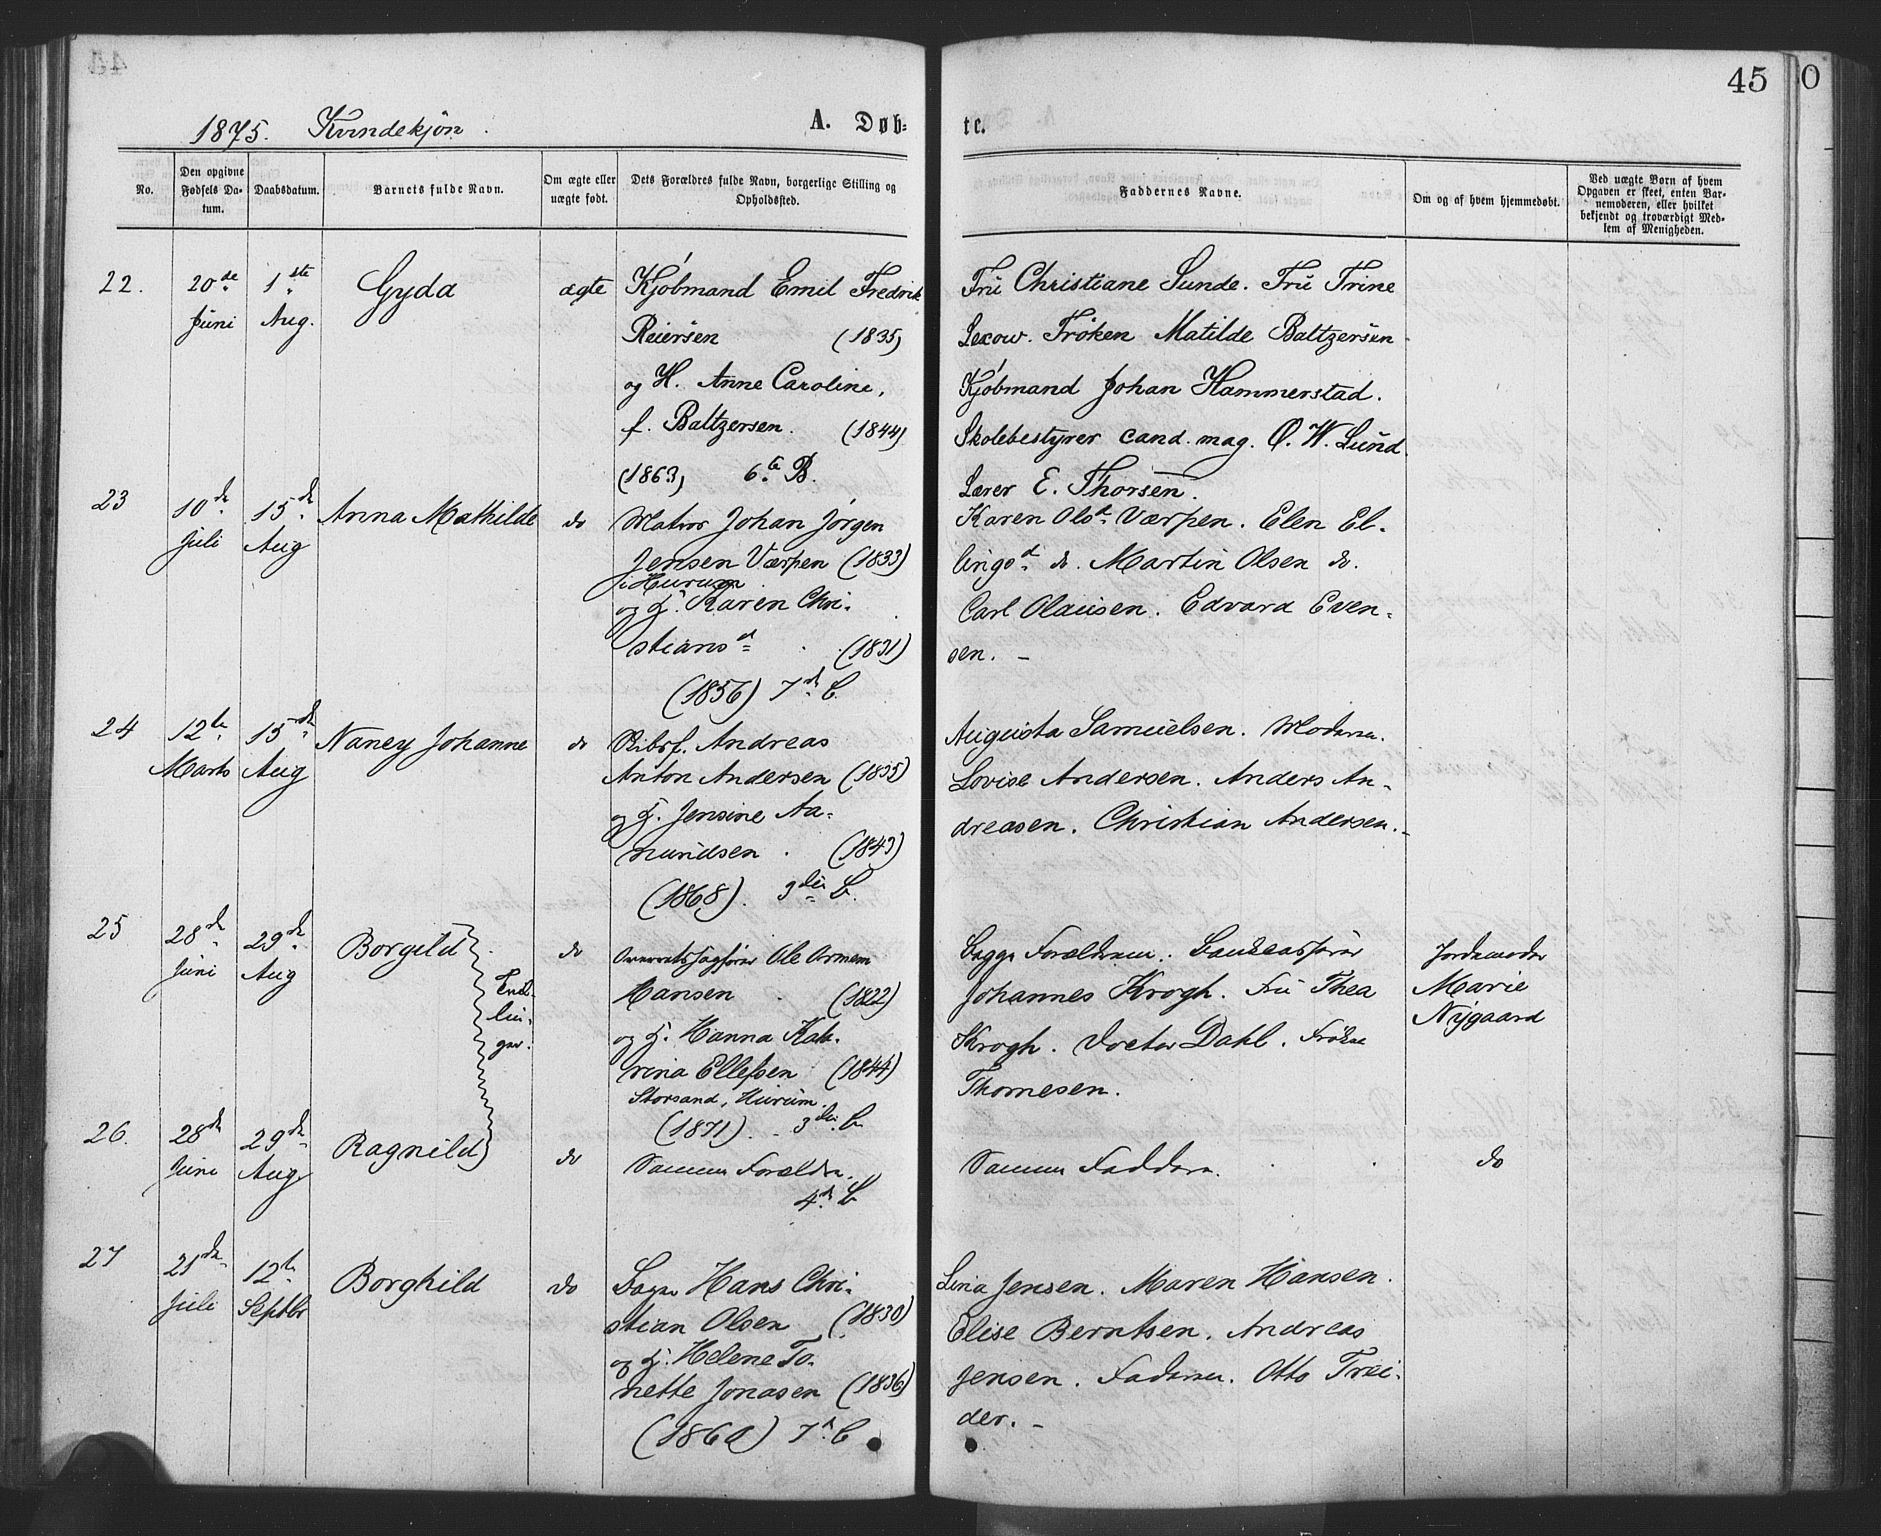 45
1875. Kvindekjøn.
A. Døbte.
No.
Den opgivne Fødsels Datum.
Daabsdatum.
Barnets fulde Navn.
Om ægte eller uægte født.
Dets Forældres fulde Navn, borgerlige Stilling og Opholdssted.
Faddernes Navne.
Om og af hvem hjemmedøbt.
Ved uægte Børn af hvem Opgaven er skeet, enten Barnemoderen, eller hvilket bekjendt og troværdigt Medlem af Menigheden.
22.
20de Juni
1ste Aug.
Gyda
ægte
Kjøbmand Emil Fredrik
Reiersen (1835)
og H. Anne Caroline,
f. Baltzersen. (1844)
(1863) 6te B.
Fru Christiane Sunde. Fru Trine
Lexow. Frøken Matilde Baltzersen
Kjøbmand Johan Hammerstad.
Skolebestyrer cand. mag. O. W. Lund.
Lærer E. Thorsen.
23
10de Juli
15de Aug
Anna Mathilde
do
Matros Johan Jørgen
Jensen Værpen (1833)
i Hurum
og H. Karen Chri-
stiansd (1831)
(1856) 7de B.
Karen Olsd Værpen. Elen El-
lingsd do. Martin Olsen do.
Carl Olausen. Edvard Even-
sen. -
24
12te Marts
15de Aug
Nancy Johanne
do
Skibsf. Andreas
Anton Andersen (1835)
og H. Jensine Aa-
mundsen. (1843)
(1868). 3die B.
Augusta Samuelsen. Moderen.
Lovise Andersen. Anders An-
dreasen. Christian Andersen. -
25
28de Juni
29de Aug
Borgild
Tvil-
lin-
ger.
do
Overretssagfører Ole Ormem
Hansen. (1822)
og H. Hanna Kat-
rina Ellefsen (1844)
Storsand, Hurum.
(1871). - 3die B.
Begge Forældrene.
Johannes Krogh. Fru Thea
Krogh. Doctor Dahl. Frøken
Thomesen.
Jordemoder
Marie
Nygaard
26.
28de Juni
29de Aug
Ragnild
do
Samme Forældre.
4de B
Samme Faddere.
do
27
21de Juli
12te Septbr
Borghild
do
Hans Chri-
stian Olsen (1830)
og H. Helene To-
nette Jonasen (1836)
(1860) 7de B
Lina Jensen. Maren Hansen.
Elise Berntsen. Andreas
Jensen. Faderen. Otto Trei-
der. -